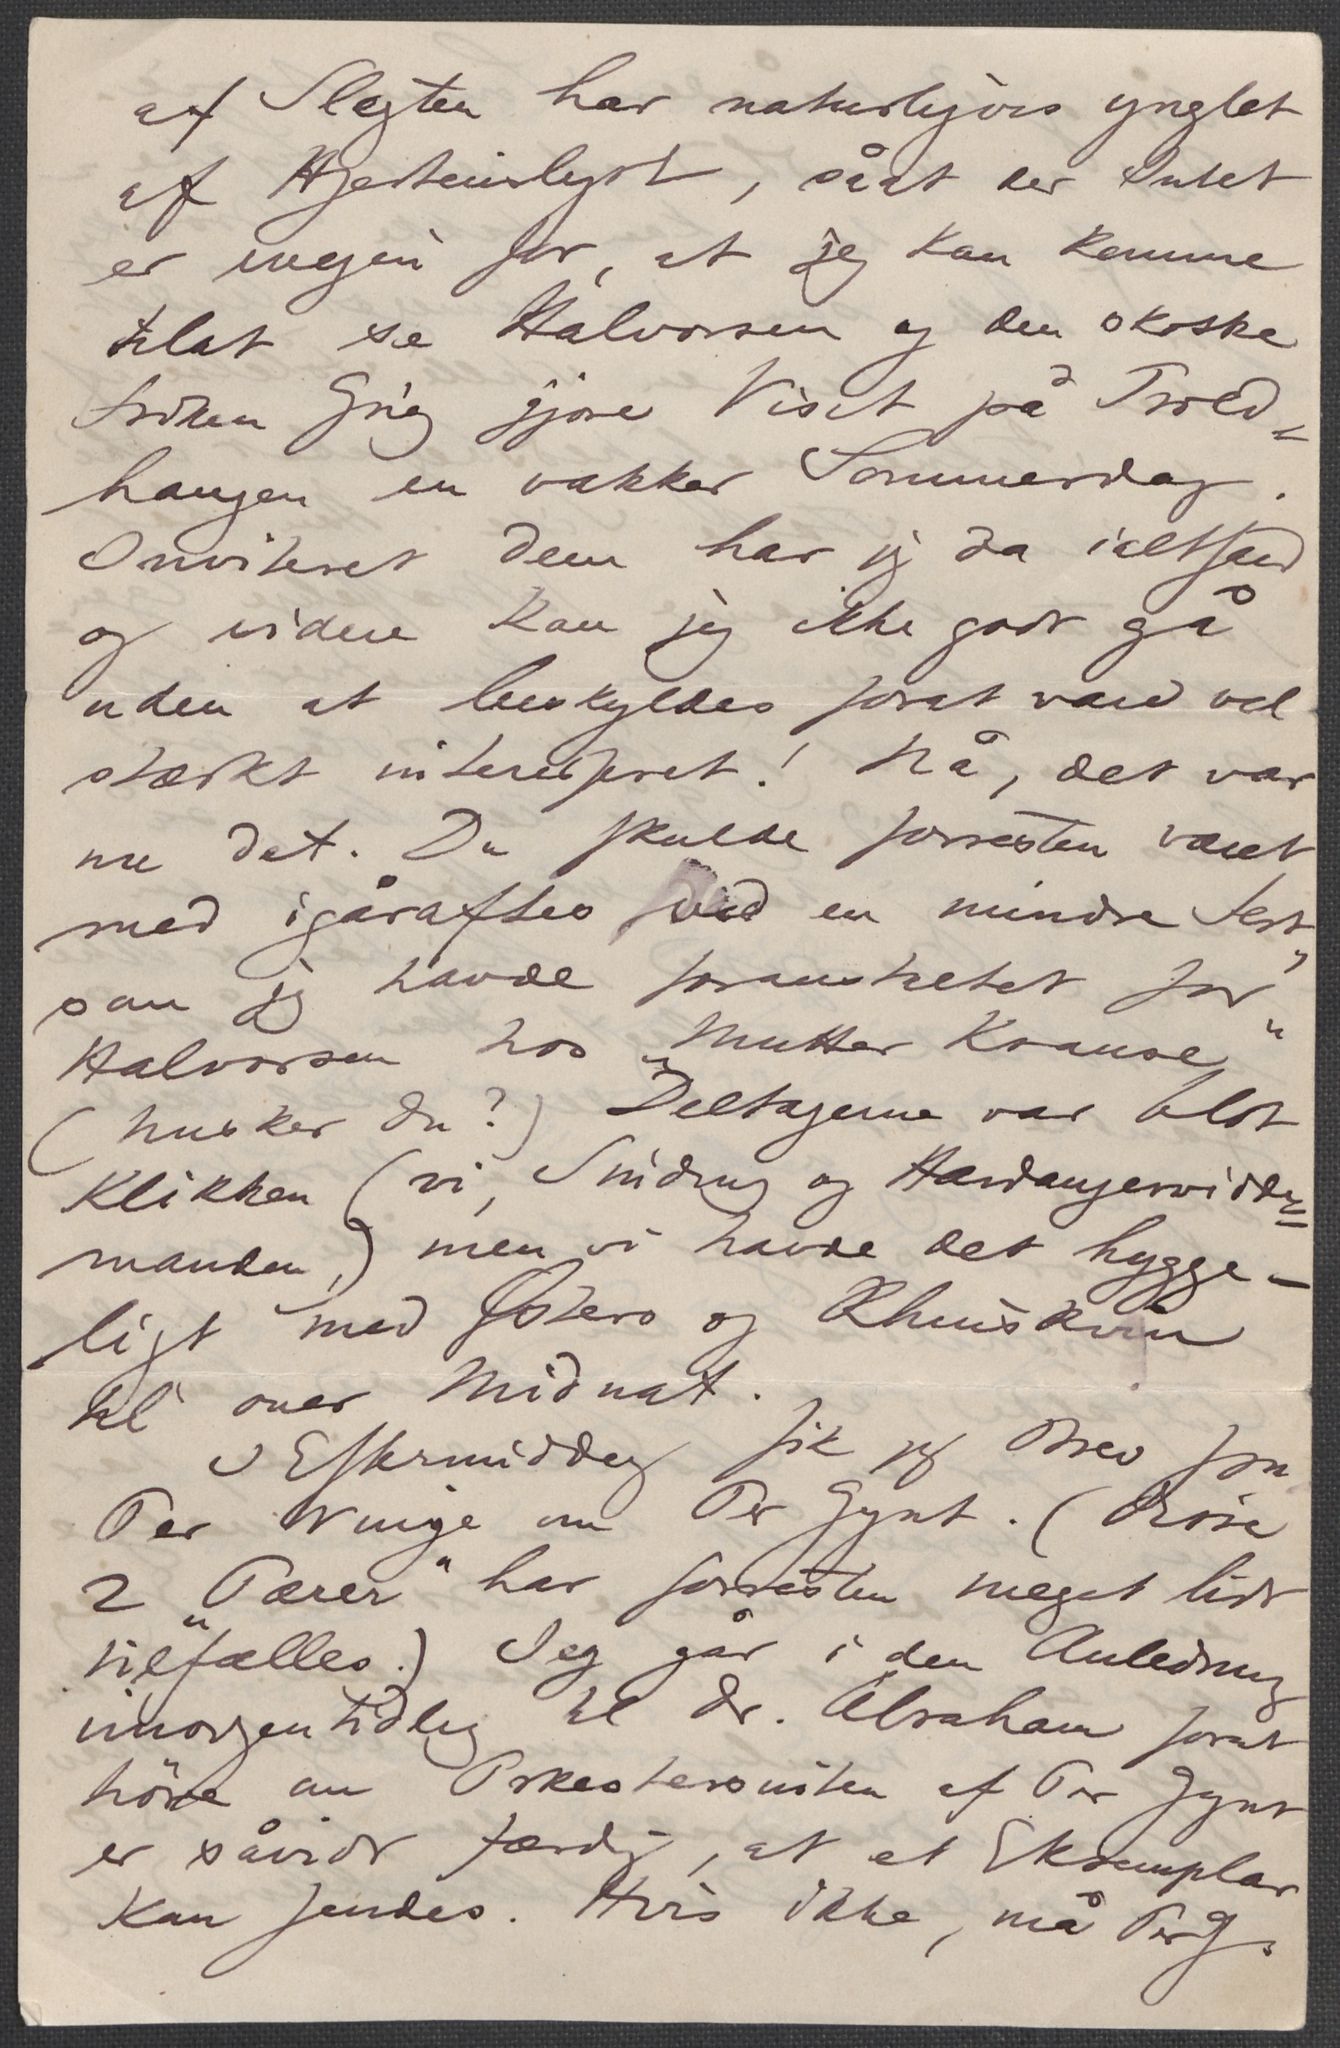 af Slegten har naturligvis ynglet
af Hjertenslyst, såat der Intet
er iveien for, at jeg kan komme
tilat se Halvorsen og den skotske
Frøken Grieg gjøre Visit på Trold-
haugen en vakker Sommerdag.
Inviteret dem har jeg da ialtfald
og videre kan jeg ikke godt gå
uden at beskyldes forat være vel
stærkt interesseret! Nå, det var
nu det. Du skulde forresten været
med igåraftes ved en mindre Fest,
som jeg havde foranstaltet for
Halvorsen hos „Mutter Krause"
(husker du?) Deltagerne var blot
Klikken (vi, Sinding og Hardangervidde-
manden,) men vi havde det hygge-
ligt med Østers og Rhinskvin
til over Midnat.
I Eftermiddag fik jeg Brev fra
Per Winge om Per Gynt. (Disse
2 „Pærer" har forresten meget lidt
tilfælles.) Jeg går i den Anledning
imorgentidlig til Dr. Abraham forat
höre om Orkestersuiten af Per Gynt
er såvidt færdig, at et Exemplar
kan sendes. Hvis ikke, må Per G.